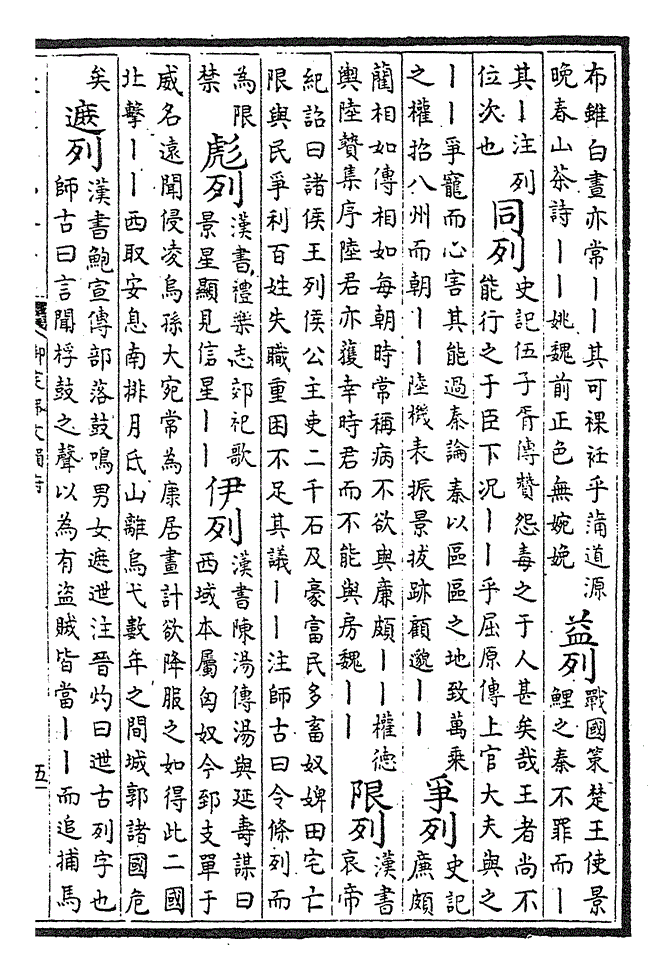 布雖白晝亦常丨丨其可裸袵乎蒲道源
晚春山茶詩丨丨姚魏前正色無婉娩
益列
戰國策楚王使景
鯉之秦不罪而丨
其丨注列
位次也
同列
史記伍子胥傳贊怨毒之于人甚矣哉王者尚不
能行之于臣下况丨丨乎屈原傳上官大夫與之
丨丨爭寵而心害其能過秦論秦以區區之地致萬乘
之權招八州而朝丨丨陸機表振景拔跡顧邈丨丨
爭列
史記
廉頗
藺相如傳相如每朝時常稱病不欲與廉頗丨丨權德
輿陸贄集序陸君亦獲幸時君而不能與房魏丨丨
限列
漢書
哀帝
紀詔曰諸侯王列侯公主吏二千石及豪富民多畜奴婢田宅亡
限與民爭利百姓失職重困不足其議丨丨注師古曰令條列而
為限
禁
彪列
漢書禮樂志郊祀歌
景星顯見信星丨丨
伊列
漢書陳湯傳湯與延壽謀曰
西域本屬匈奴今郅支單于
威名遠聞侵凌烏孫大宛常為康居畫計欲降服之如得此二國
北擊丨丨西取安息南排月氏山離烏弋數年之間城郭諸國危
矣
遮列
漢書鮑宣傳部落鼓鳴男女遮迣注晉灼曰迣古列字也
師古曰言聞桴鼓之聲以為有盜賊皆當丨丨而追捕馬
五